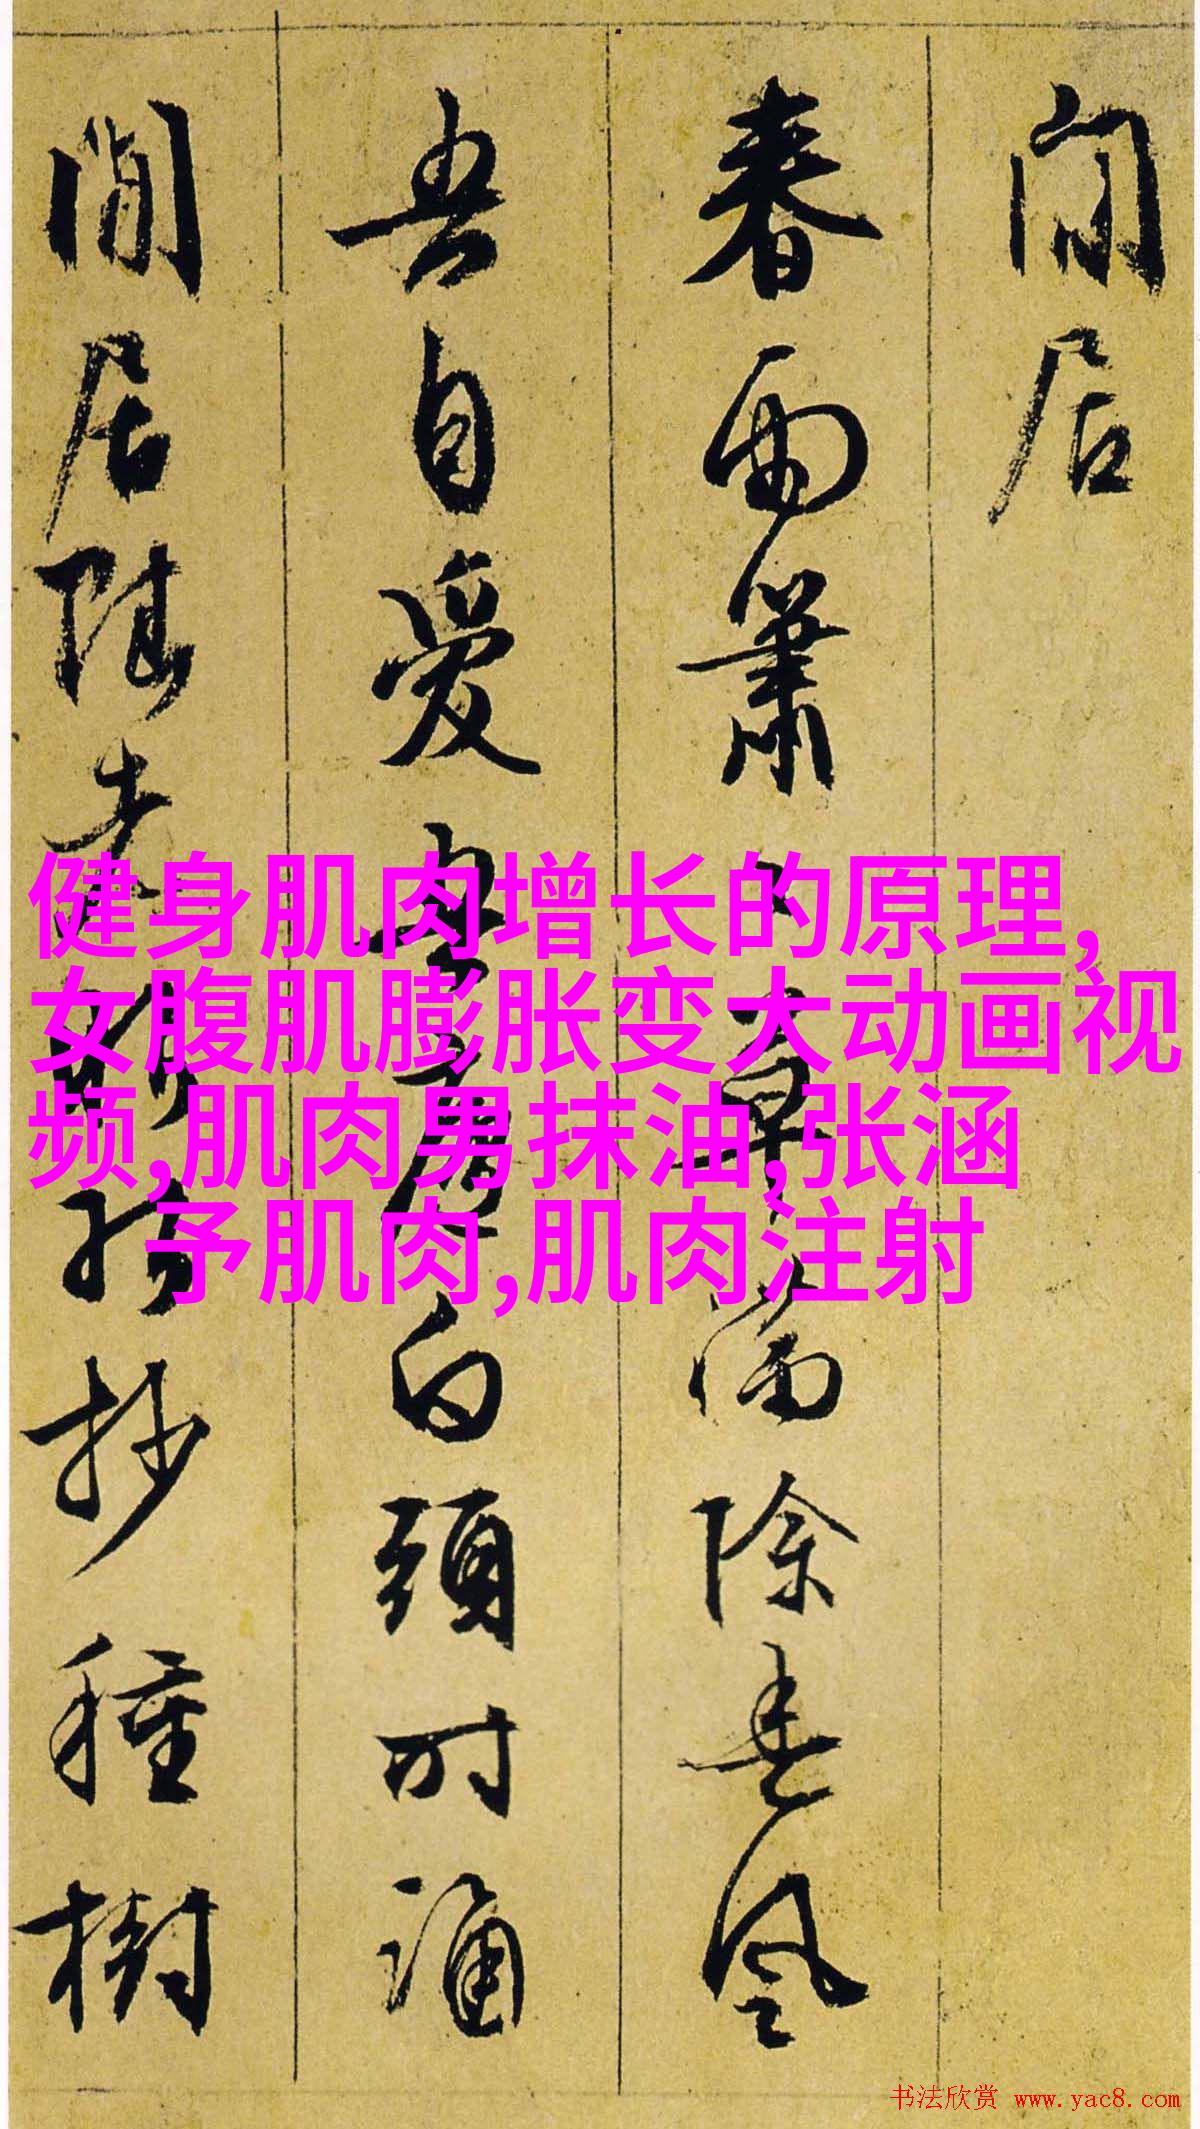 闲居
春雨萧々草满除春风
吾自爱吾庐白头时诵
闲居赋
抄种树
健身肌肉增长的原理,
女腹肌膨胀变大动画视
频,肌肉男抹油,张涵
予肌肉,肌肉注射
书法欣赏 www.yac8.com